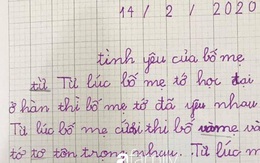 14 / 2 / 2020
tình yêu của bố mẹ
từ Từ lúc bố mẹ tớ học đại
ở hàn thì bố mẹ tớ đã yêu nhau
Từ lúc bố mẹ cưới thì bố và mẹ và
tớ tơ tôn trọng nhau. Từ lúc m